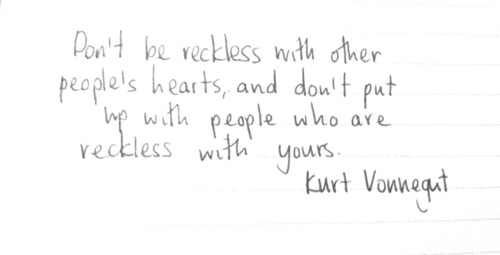 Don't be reckless with other
people's hearts, and don't put
up with people who are
reckless with yours.
Kurt Vonnegut